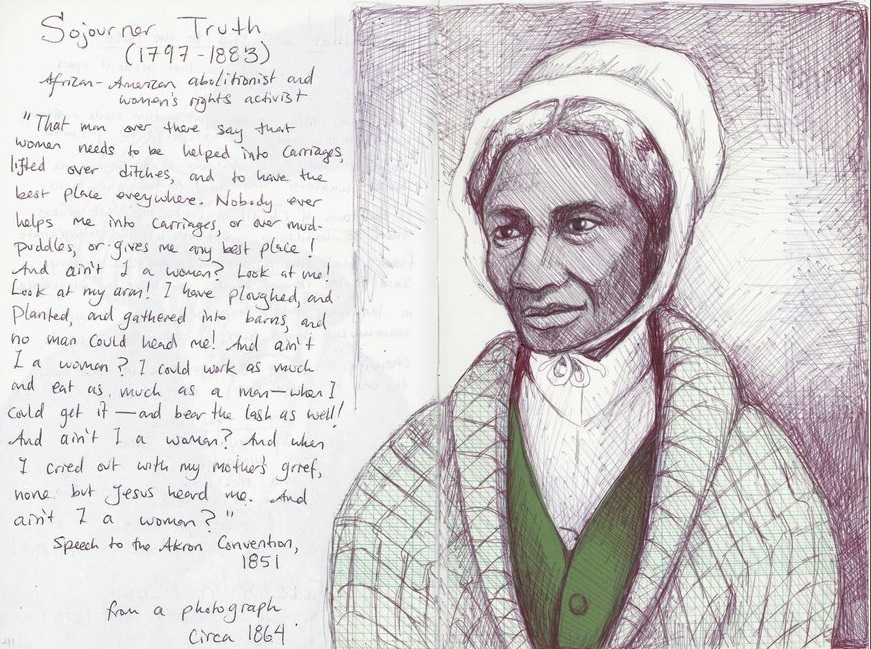 Sojourner Truth
(1797-1883)
African-American abolitionist and
women's rights activist
"That man over there say that
women needs to be helped into carriages,
lifted over ditches, and to have the
best place everywhere. Nobody ever
helps me into carriages, or over mud-
puddles, or gives me any best place!
And ain't I a woman? Look at me!
Look at my arm! I have ploughed, and
planted, and gathered into barns, and
no man could head me! And ain't
I a woman? I could work as much
and eat as much as a man—when I
could get it—and bear the lash as well!
And ain't I a woman? And when
I cried out with my mother's grief,
none but Jesus heard me. And
ain't I a woman?"
Speech to the Akron Convention,
1851
from a photograph
circa 1864
41